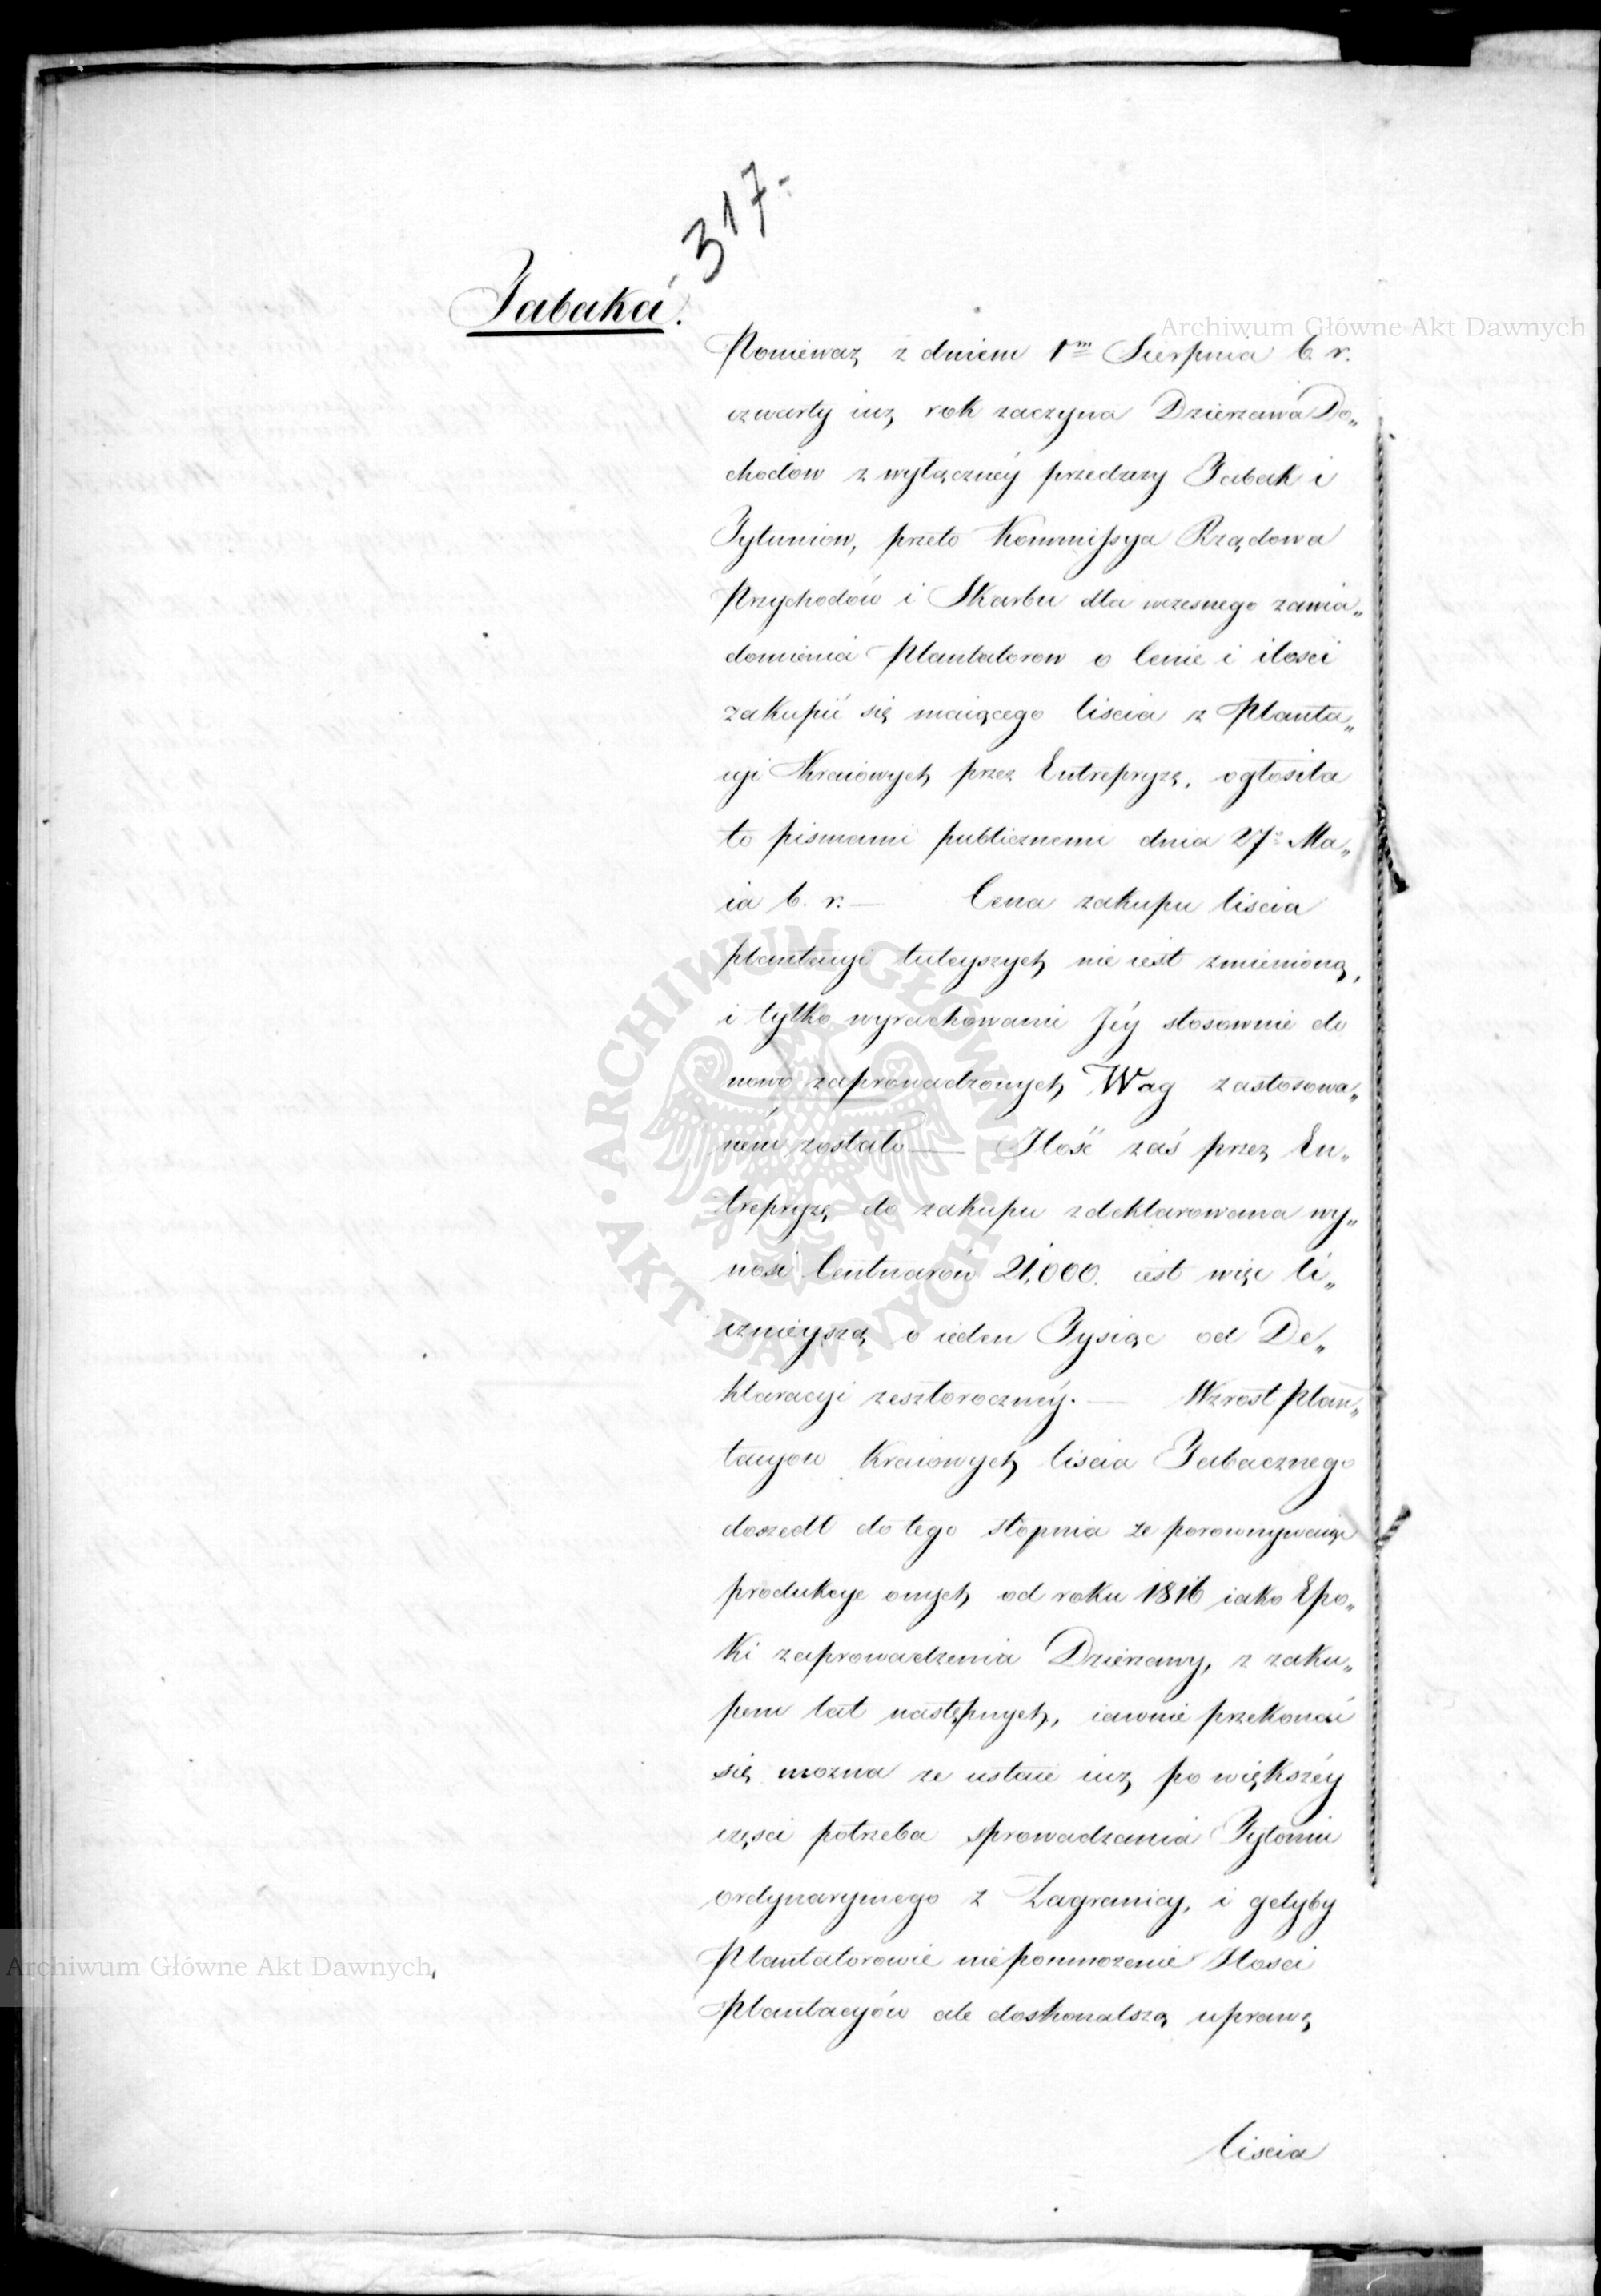 317.
Tabaka.
Archiwum Główne Akt Dawnych
Ponieważ z dniem 1m Sierpnia b. r.
czwarty iuż rok zaczyna Dzierzawa Do„
chodów z wyłącznéy przedazy Tabak i
Tytuniow, przeto Kommissya Rządowa
Przychodów i Skarbu dla wczesnego zawia„
domienia Plantatorow o Cenie i ilosci
zakupić się maiącego liscia z Planta„
cyi Kraiowych przez Entrepryzę, ogłosiła
to pismami publicznemi dnia 27o Ma„
ia b. r. — Cena zakupu liscia
plantacyi tuteyszych nie iest zmienioną,
i tylko wyrachowanie Jéy stosownie do
nowo zaprowadzonych Wag zastosowa„
ném zostało — Ilość zaś przez En„
trepryzę do zakupu zdeklarowana wy„
nosi Centnarów 21,000. iest więc li„
cznieyszą o ieden Tysiąc od De„
klaracyi zeszłorocznéy. — Wzrost plan„
tacyow Kraiowych liscia Tabacznego
doszedł do tego stopnia ze porownywaiąc
produkcye onych od roku 1816 iako Epo„
ki zaprowadzenia Dzierzawy, z zaku„
pem lat następnych, iawnie przekonać
się mozna ze ustaie iuż po większéy
częsci potrzeba sprowadzania Tytoniu
ordynaryinego z Zagranicy, i gdyby
Plantatorowie nie pomnozenie Ilosci
Plantacyów ale doskonalszą uprawę
liscia
Archiwum Główne Akt Dawnych
ARCHIWUM GŁÓWNE AKT DAWNYCH